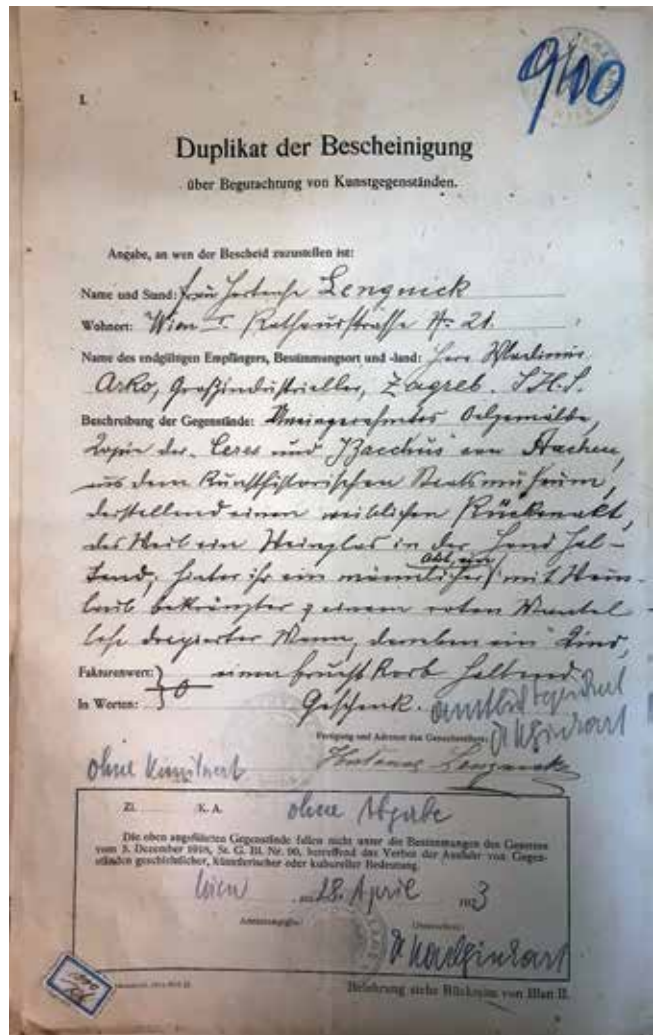 9/10
I.
I.
Duplikat der Bescheinigung
über Begutachtung von Kunstgegenständen.
Angabe, an wen der Bescheid zuzustellen ist:
Name und Stand: Frau Hortense Lengnick
Wohnort: Wien I. Rathausstrasse Nr 21.
Name des endgültigen Empfängers, Bestimmungsort und -land: Herr Wladimir
Arko, Großindustrieller, Zagreb. S.H.S.
Beschreibung der Gegenstände: Uneingerahmtes Oelgemälde,
Kopie der „Ceres und Bacchus" von Aachen,
aus dem Kunsthistorischen Staatsmuseum,
darstellend einen weiblichen Rückenakt,
das Weib ein Weinglas in der Hand hal-
tend; hinter ihr ein männlicher Akt, ein mit Wein-
laub bekränzter & einem roten Mantel
lose drapierter Mann, daneben ein Kind,
Fakturenwert: einen Fruchtkorb haltend.
In Worten: Geschenk.
Fertigung und Adresse des Gesuchstellers:
Hortense Lengnick
ohne Kunstwert
Zl. K. A. ohne Abgabe
Die oben angeführten Gegenstände fallen nicht unter die Bestimmungen des Gesetzes
vom 5. Dezember 1918, St. G. Bl. Nr. 90, betreffend das Verbot der Ausfuhr von Gegen-
ständen geschichtlicher, künstlerischer oder kultureller Bedeutung.
Wien am 28. April 1923
Amtssiegel:
Unterschrift:
Belehrung siehe Rückseite von Blatt II.